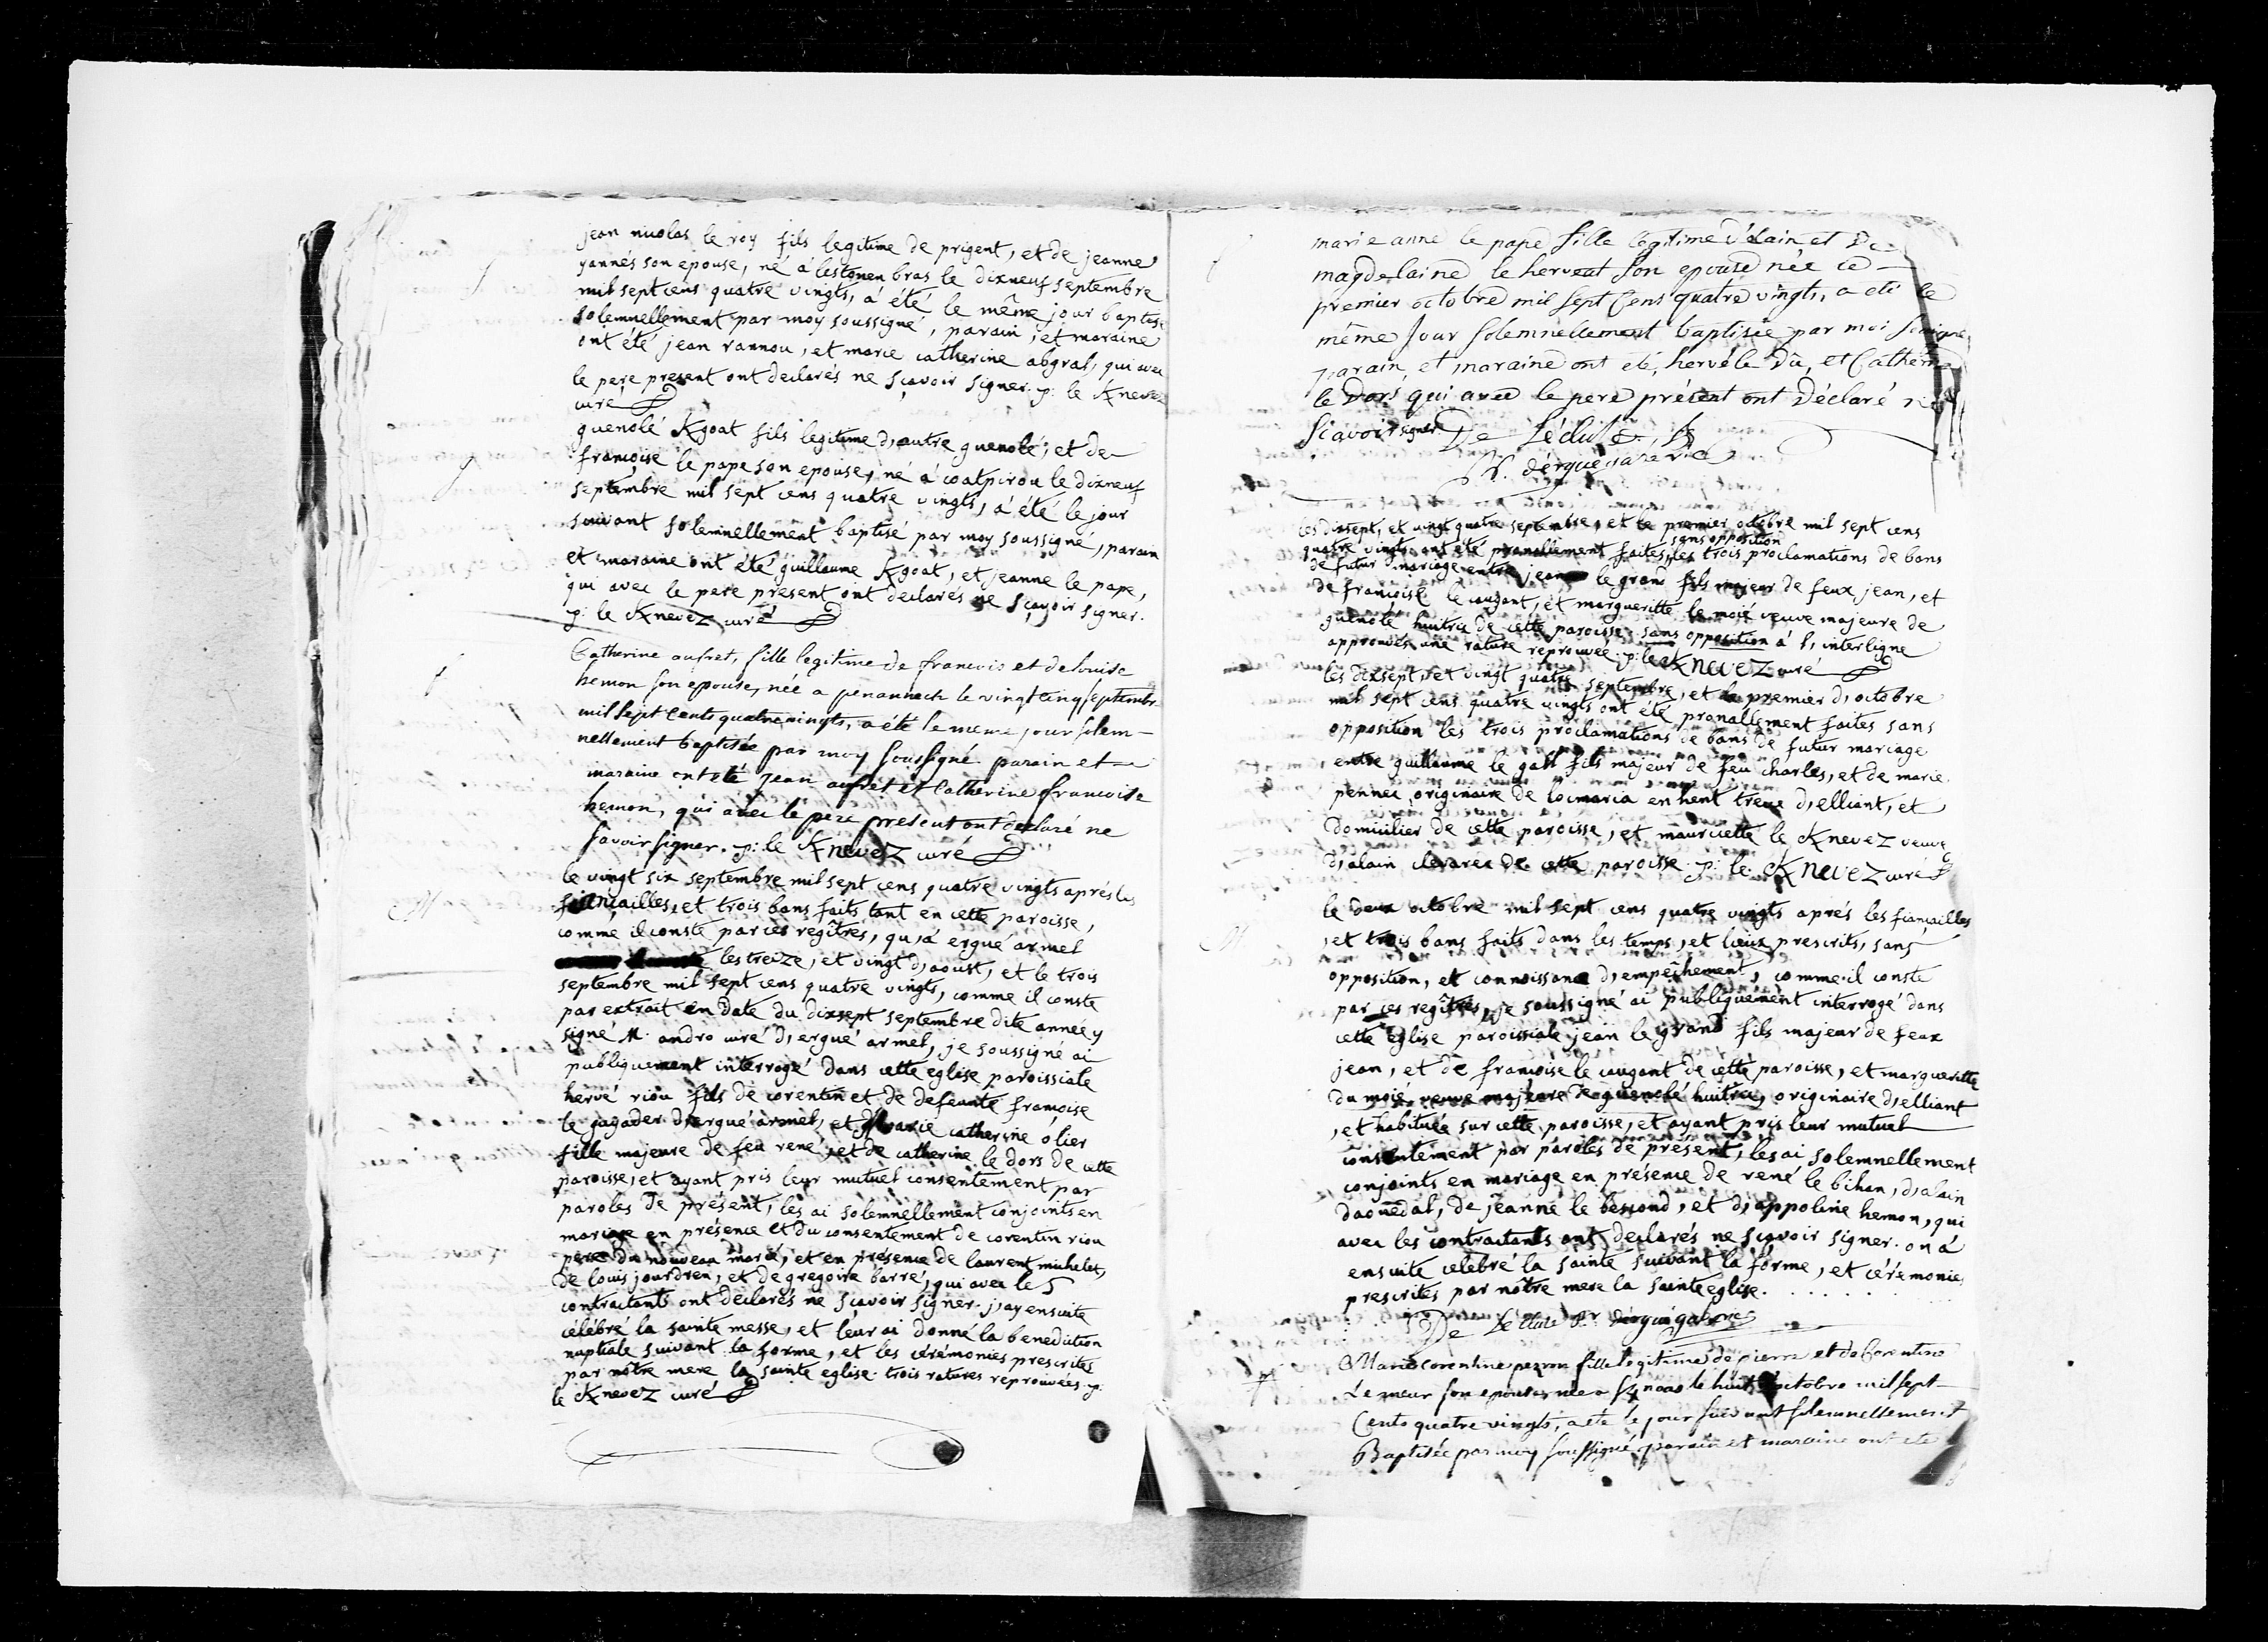 jean nicolas le roy fils legitime de prigent, et de jeanne
yannés son epouse, né à lestonen bras le dixneuf septembre
mil sept cens quatre vingts, à été le même jour baptisé
solemnellement par moy soussigné, parain, et maraine
ont été jean rannou, et marie catherine abgral, qui avec
le pere present ont declarés ne sçavoir signer. p: le Knevez
curé
guenolé Kgoat fils legitime d'autre guenolé, et de
francoise le pape son epouse, né à coatpirou le dixneuf
septembre mil sept cens quatre vingts, à été le jour
suivant solemnellement baptisé par moy soussigné, parain
et maraine ont été guillaume Kgoat, et jeanne le pape,
qui avec le pere present ont declarés ne sçavoir signer.
p: le Knevez curé
Catherine aufret, fille legitime de francois et de louise
hemon son epouse, née a penannech le vingt cinq septembre
mil sept cents quatrevingts, a été le meme jour solem-
nellement baptisée par moy soussigné. parain et
maraine ont été jean aufret et Catherine francoise
hemon, qui avec le pere present ont declaré ne
savoir signer. p: le Knevez curé
M
le vingt six septembre mil sept cens quatre vingts aprés les
fiançailles, et trois bans faits tant en cette paroisse,
comme il conste par ces regîtres, qu'à ergué armel
les treize, et vingt d'aoust, et le trois
septembre mil sept cens quatre vingts, comme il conste
par extrait en date du dixsept septembre dite année
signé M. andro curé d'ergué armel, je soussigné ai
publiquement interrogé dans cette eglise paroissiale
hervé riou fils de corentin et de defeunte françoise
le gagader d'ergué armel, et Marie catherine olier
fille majeure de feu rené, et de catherine le dors de cette
paroisse, et ayant pris leur mutuel consentement par
paroles de présent, les ai solemnellement conjoints en
mariage en présence et du consentement de corentin riou
pere du nouveau marié, et en présence de laurent michelet,
de louis jourdren, et de gregoire barré, qui avec les
contractants ont declarés ne sçavoir signer. j'ay ensuite
célébré la sainte messe, et leur ai donné la benediction
nuptiale suivant la forme, et les cérémonies prescrites
par nôtre mere la sainte eglise. trois ratures reprouvées. p:
le Knevez curé
marie anne le pape fille légitime d'alain et de
magdelaine le herveat son epouse née ce
premier octobre mil sept cens quatre vingts, a eté le
même jour solemnellement baptisée par moi
parain, et maraine ont eté, hervé le Du, et Catherine
le Dors qui avec le pere présent ont Déclaré ne
sçavoir signer De Lécluse
R. d'erguégaberic
les dixsept, et vingt quatre septembre, et le premier octobre mil sept cens
sans opposition
quatre vingts ont été pronallement faites, les trois proclamations de bans
de futur mariage entre jean le grand fils majeur de feux jean, et
de francoise le caugant, et margueritte le moié veuve majeure de
guenolé huitric de cette paroisse. sans opposition à l'interligne
approuvés une rature reprouvée. p: le Knevez curé
les dixsept, et vingt quatre septembre, et le premier d'octobre
mil sept cens quatre vingts ont été pronallement faites sans
opposition les trois proclamations de bans de futur mariage
entre guillaume le gall fils majeur de feu charles, et de marie
pennec originaire de locmaria en hent treve d'elliant, et
domicilier de cette paroisse, et mauricette le Knevez veuve
d'alain clevarec de cette paroisse. p: le Knevez curé
M
le deux octobre mil sept cens quatre vingts aprés les fiançailles
, et trois bans faits dans les temps, et lieux prescrits, sans
opposition, et connoissance d'empêchement, comme il conste
par ces regîtres, je soussigné ai publiquement interrogé dans
cette eglise paroissiale jean le grand fils majeur de feux
jean, et de françoise le caugant de cette paroisse, et margueritte
du moié veuve majeure de guenolé huitric, originaire d'elliant
, et habituée sur cette paroisse, et ayant pris leur mutuel
consentement par paroles de présent, les ai solemnellement
conjoints en mariage en présence de rené le bihan, d'alain
daouëdal, de jeanne le bescond, et d'appoline hemon, qui
avec les contractants ont declarés ne sçavoir signer. on à
ensuite celebré la sainte suivant la forme, et cérémonies
prescrites par nôtre mere la sainte eglise.
De Lécluse R. d'erguégaberic
Marie Corentine pezron fille légitime de pierre et de Corentine
Le meur son epouse, née a le huit octobre mil sept
Cents quatre vingts, a ete le jour suivant solemnellement
Baptisée par moy soussigné, parain et maraine ont ete